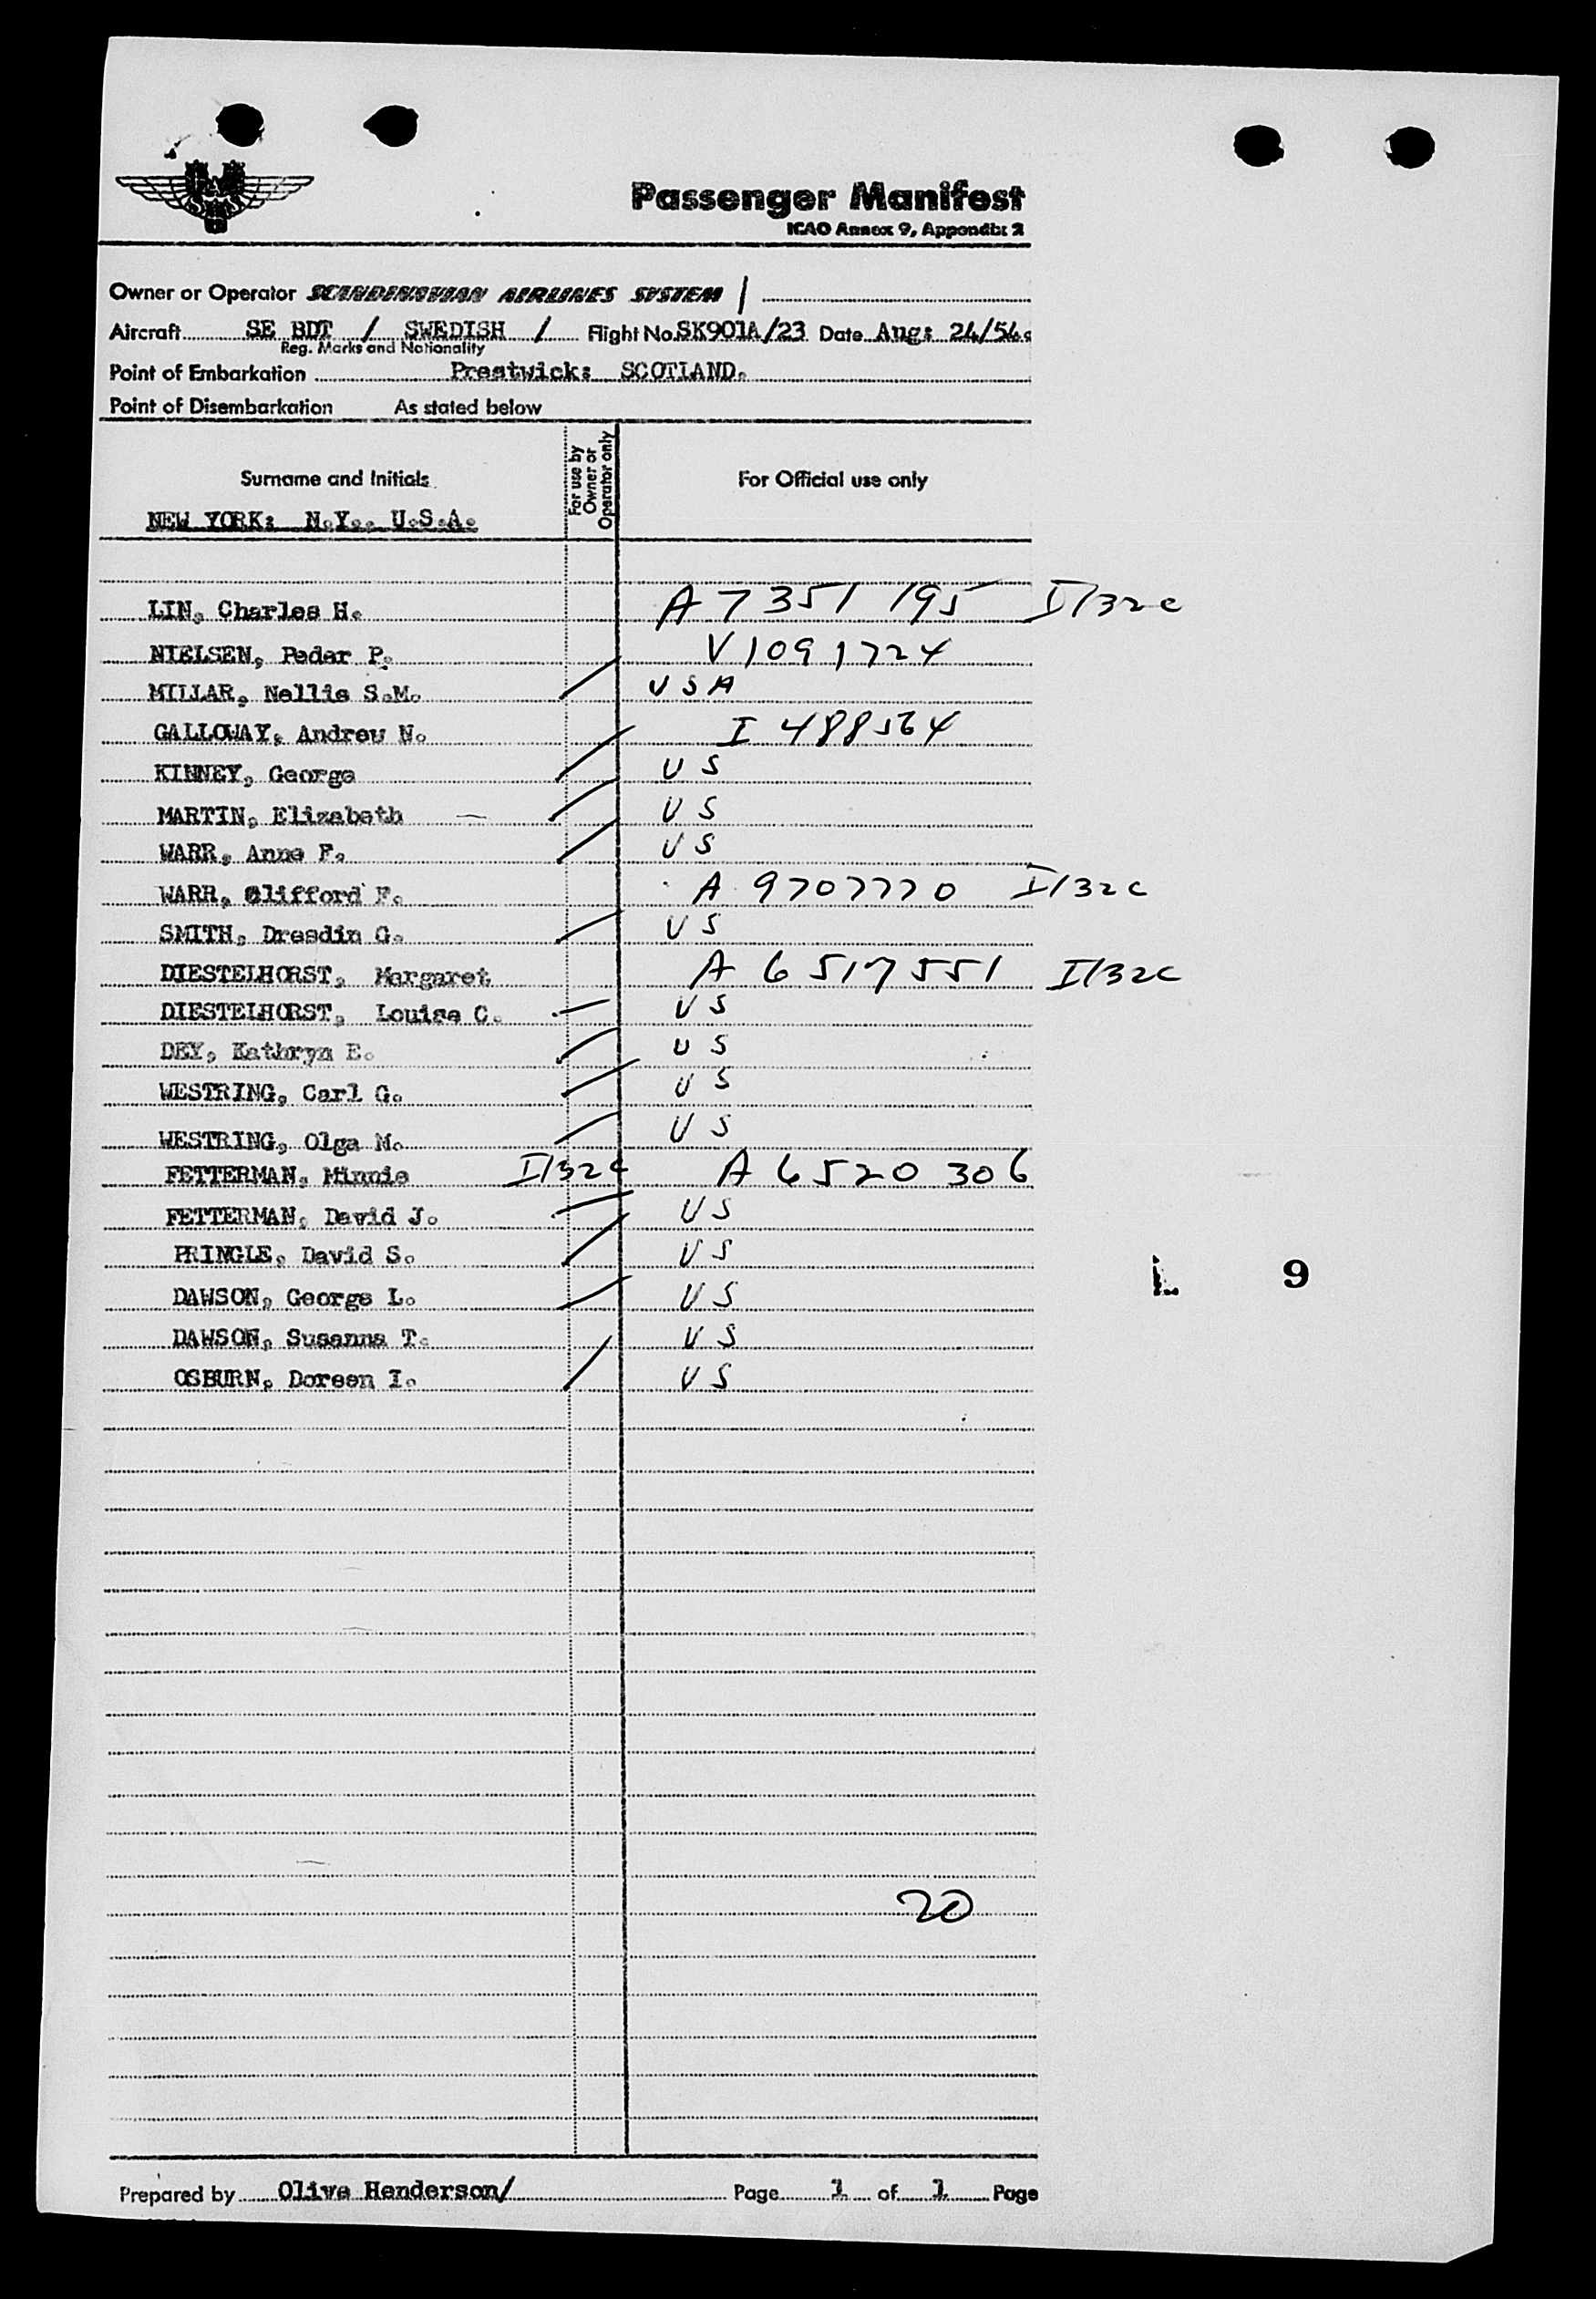 Passenger Manifest
ICAO Annex 9, Appendix 2
Owner or Operator SCANDINAVIAN AIRLINES SYSTEM /
Aircraft SE BDT / SWEDISH / Flight No. SK901A/23 Date Aug: 24/54.
Reg. Marks and Nationality
Point of Embarkation Prestwick: SCOTLAND.
Point of Disembarkation As stated below
Surname and Initials
For use by Owner or Operator only
For Official use only
NEW YORK: N.Y.. U.S.A.
LIN, Charles H. A 7351 195 I/132c
NIELSEN, Peder P. V 1091724
MILLAR, Nellie S.M. USA
GALLOWAY, Andrew N. I 488564
KINNEY, George US
MARTIN, Elizabeth US
WARR, Anne F. US
WARR, Clifford F. A 9707770 I/132c
SMITH, Dresdin G. US
DIESTELHORST, Margaret A 6517551 I/132c
DIESTELHORST, Louise C. US
DEY, Kathryn E. US
WESTRING, Carl G. US
WESTRING, Olga M. US
FETTERMAN, Minnie I/132c A 6520 306
FETTERMAN, David J. US
PRINGLE, David S. US
9
DAWSON, George L. US
DAWSON, Susanna T. US
OSBURN, Doreen I. US
20
Prepared by Olive Henderson/ Page 1 of 1 Page